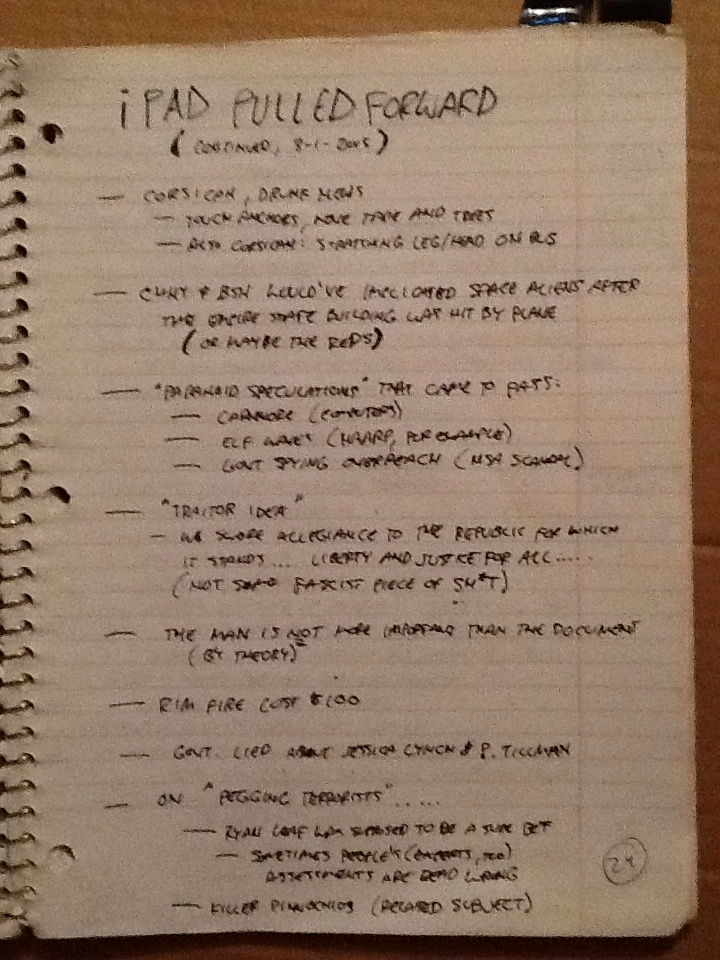 iPAD PULLED FORWARD
(CONTINUED, 8-1-2015)
— CORSICAN, DRUNK NEWS
— TOUCH ANCHORS, MOVE TAPE AND
— ALSO CORSICAN: SCRATCHING LEG/HEAD ON BUS
— CHNY & BSH WOULD'VE SPACE ALIENS AFTER
THE EMPIRE STATE BUILDING WAS HIT BY PLANE
(OR MAYBE THE REDS)
— "PARANOID SPECULATIONS" THAT CAME TO PASS:
— CARNIVORE (COMPUTERS)
— ELF WAVES (HAARP, FOR EXAMPLE)
— GOVT SPYING OVERREACH (NSA SCANDAL)
— "TRAITOR IDEA"
— WE SWORE ALLEGIANCE TO THE REPUBLIC FOR WHICH
IT STANDS... LIBERTY AND JUSTICE FOR ALL.....
(NOT SOME FASCIST PIECE OF SH*T)
— THE MAN IS NOT MORE IMPORTANT THAN THE DOCUMENT
(BY THEORY)
— RIM FIRE COST $100
— GOVT. LIED ABOUT JESSICA LYNCH & P. TILLMAN
— ON "PEGGING TERRORISTS".....
— RYAN LEAF WAS SUPPOSED TO BE A SURE BET
— SOMETIMES PEOPLE'S (EXPERTS, TOO)
ASSESSMENTS ARE DEAD WRONG
— KILLER PINNOCHIOS (RELATED SUBJECT)
24